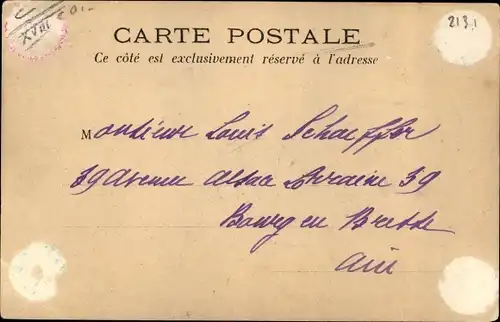 XVIII
CARTE POSTALE
Ce côté est exclusivement réservé à l'adresse
Monsieur Louis Schaeffer
39 avenue Alsace Lorraine 39
Bourg en Bresse
Ain